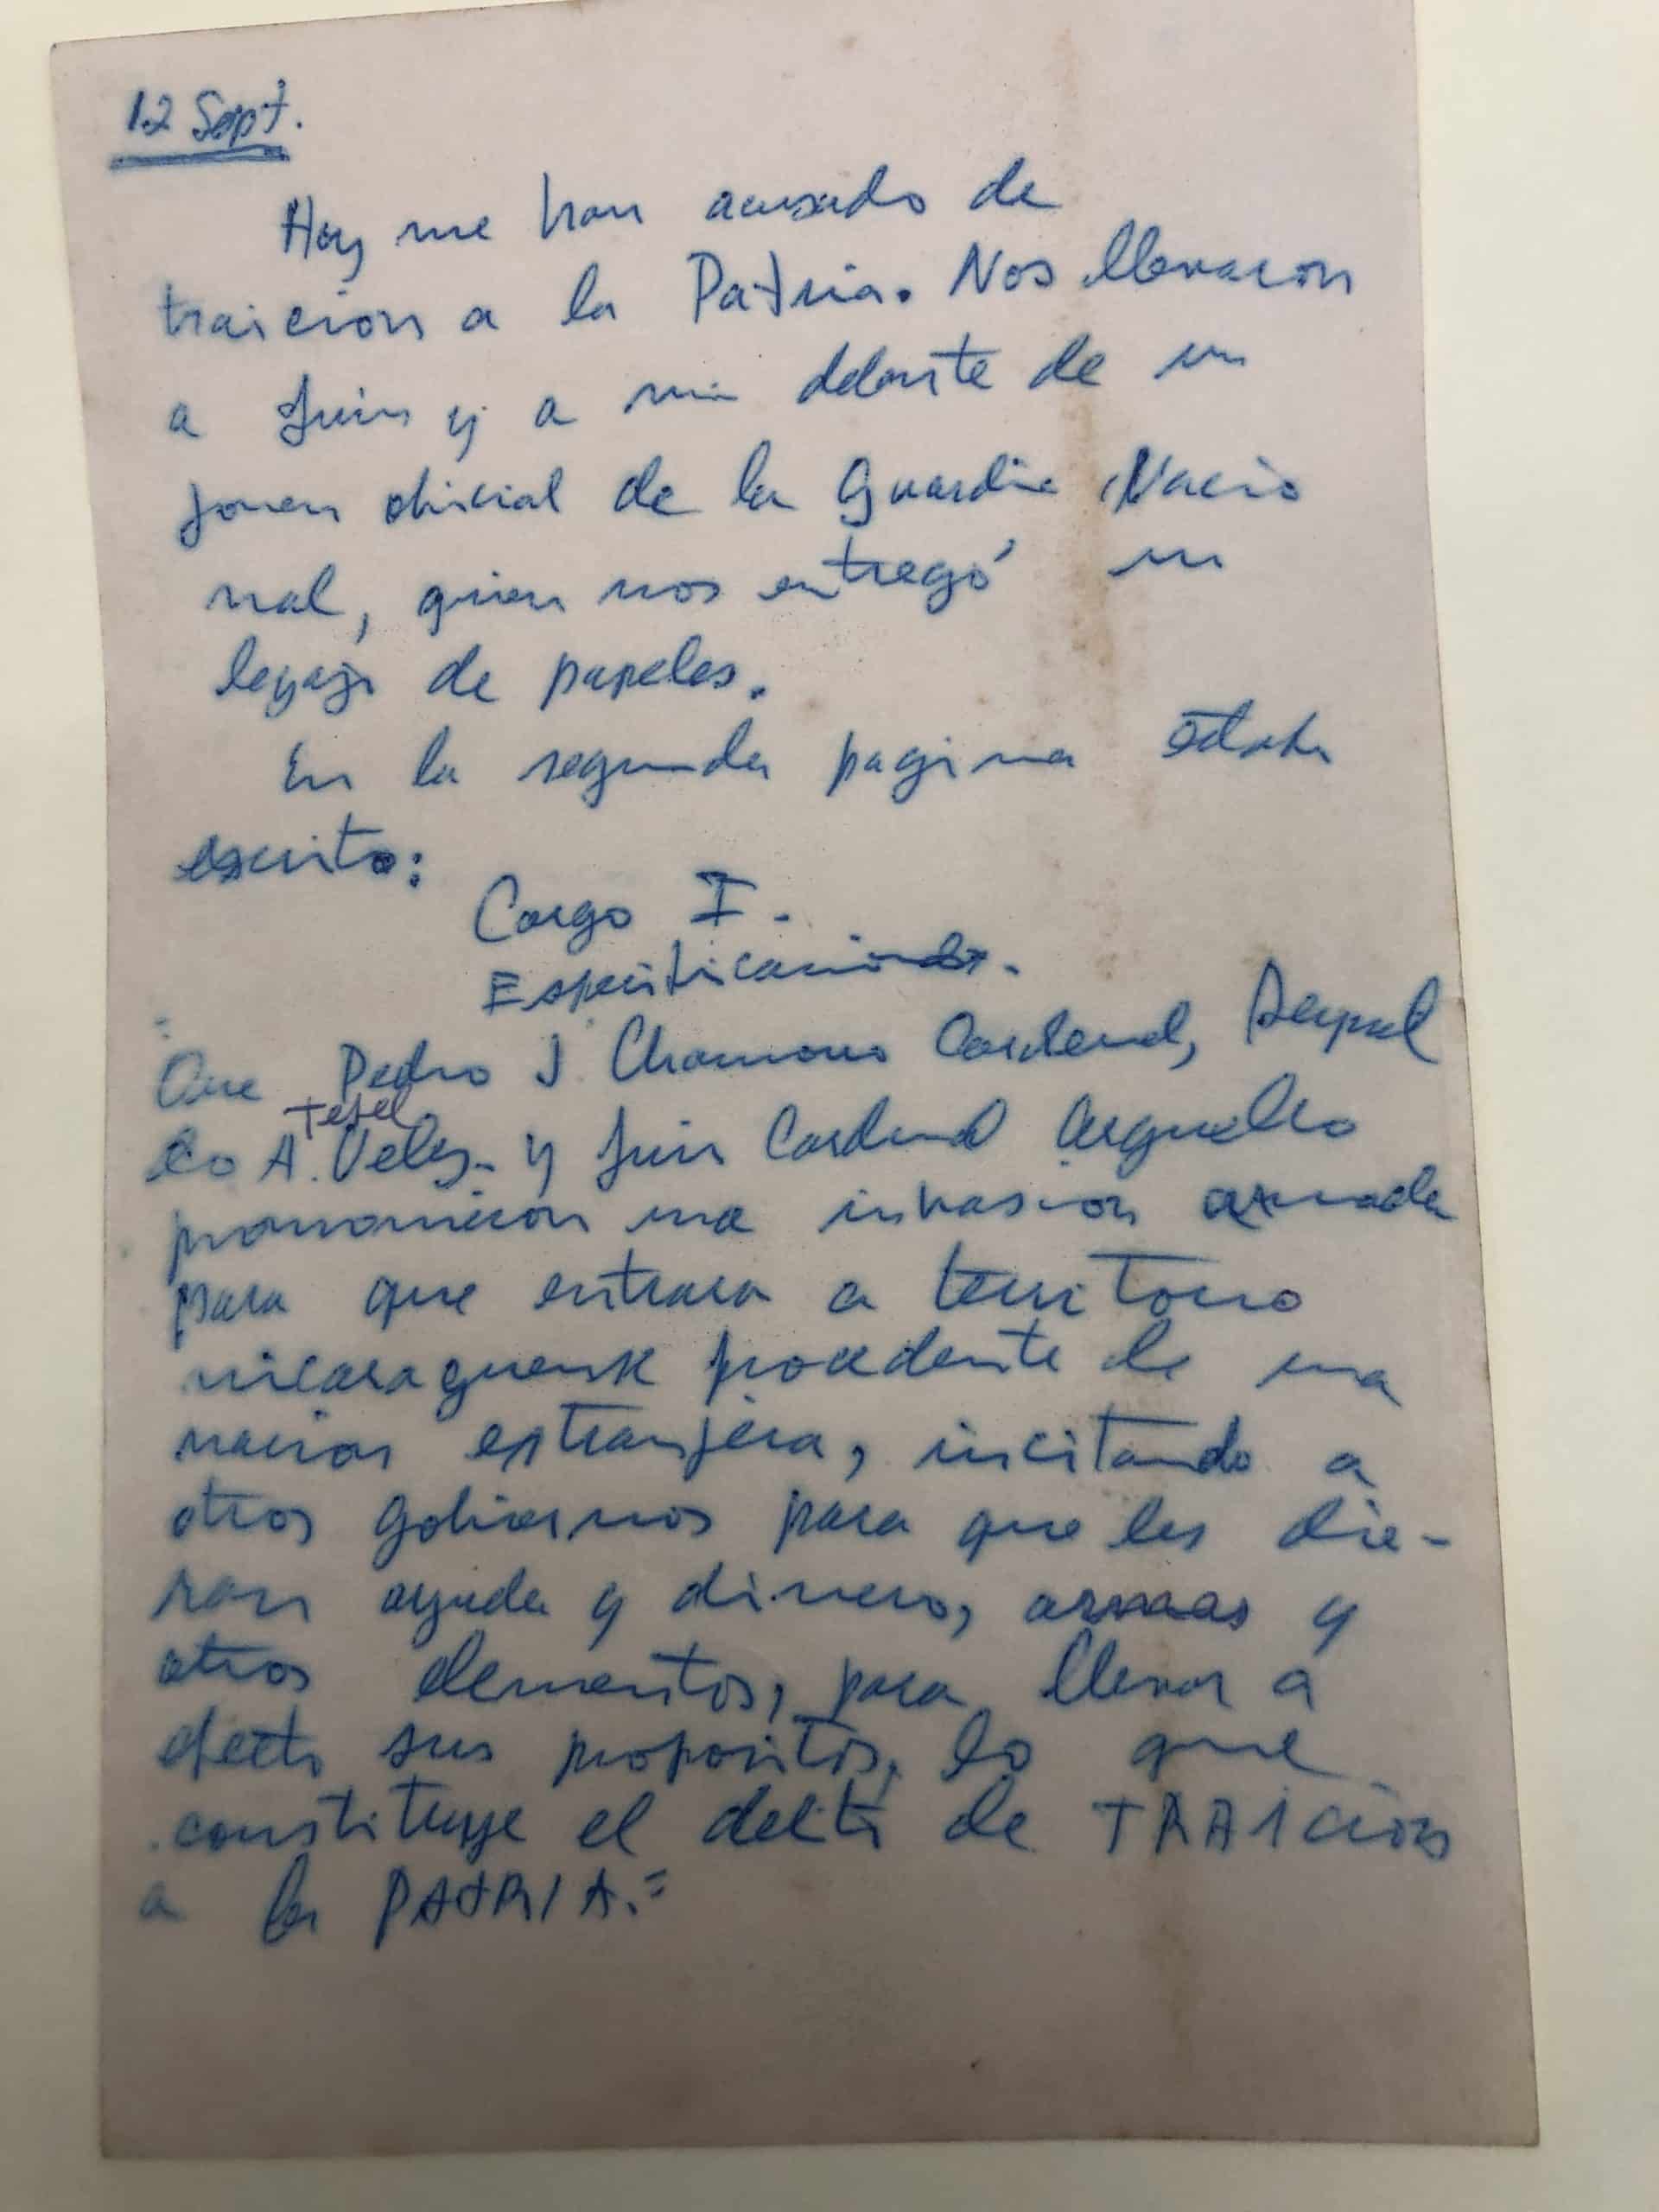 12 Sept.
Hoy me han acusado de
traicion a la Patria. Nos llevaron
a Luis y a mi delante de un
joven oficial de la Guardia Nacio
nal, quien nos entregó un
legajo de papeles.
En la segunda pagina estaba
escrito:
Cargo I.
Especificaciones.
"Que Pedro J Chamorro Cardenal,
Tefel
co A. Velez y Luis Cardenal Arguello
promovieron una invasion armada
para que entrara a territorio
nicaraguense procedente de una
nacion extranjera, incitando a
otros gobiernos para que les die-
ran ayuda y dinero, armas y
otros elementos, para llevar a
efecto sus propositos, lo que
constituye el delito de TRAICion
a la PATRIA."